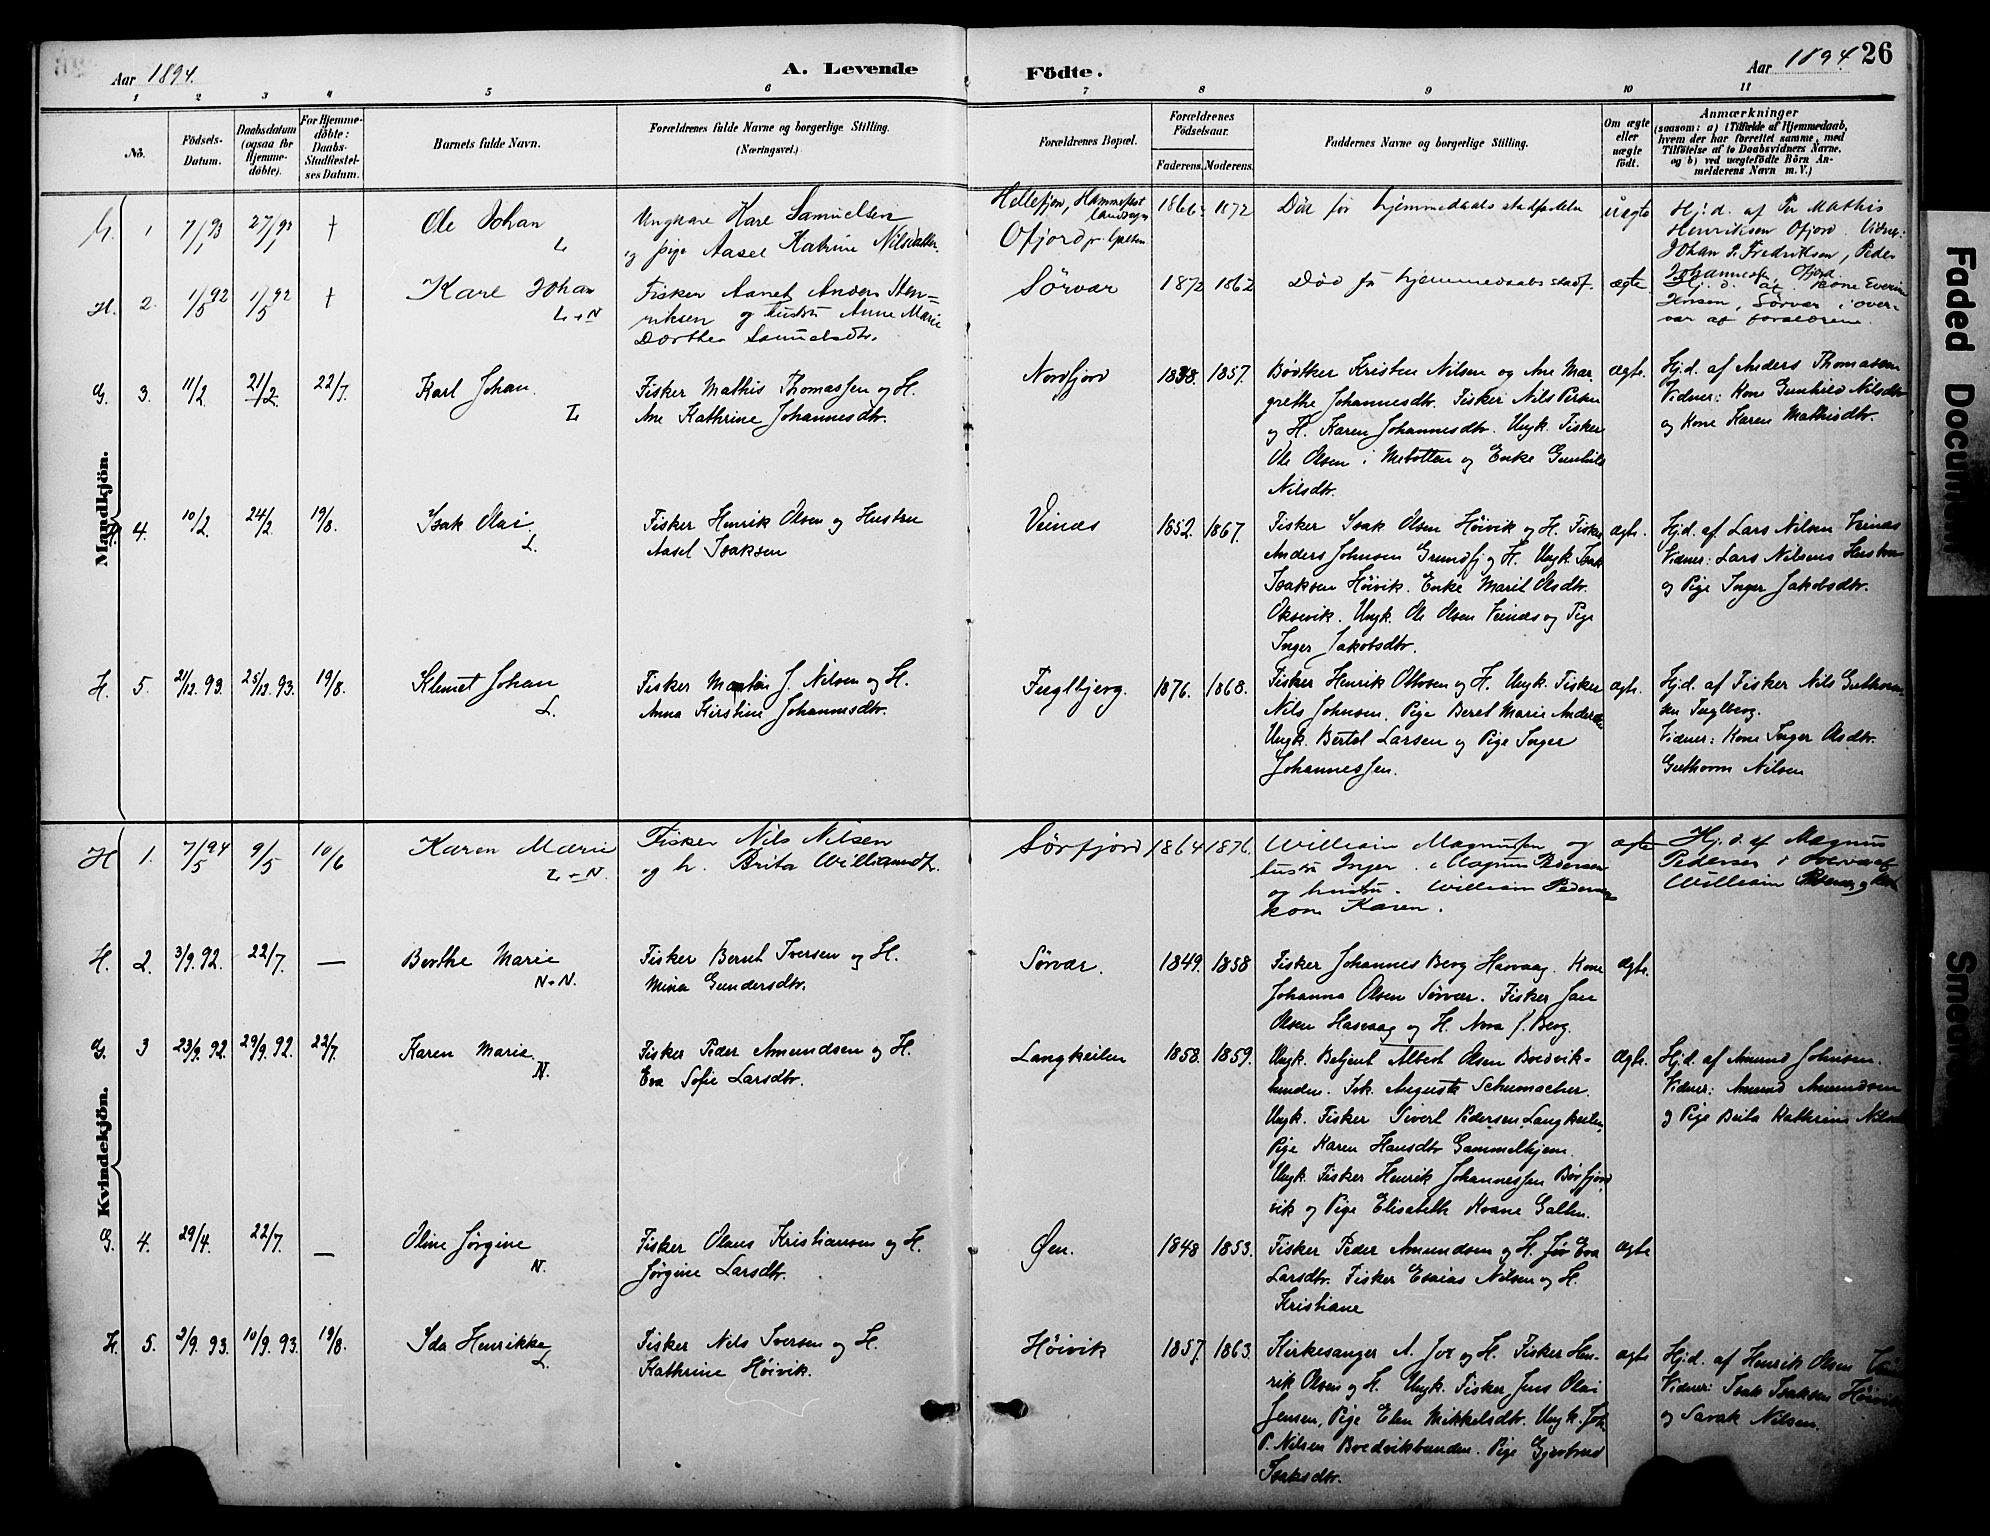 Aar 1894.
A. Levende
Födte.
Aar 1894
26
1 2 3 4 5 6 7 8 9 10 11
No.
Födsels-
Datum.
Daabsdatum
(ogsaa for
Hjemme-
döbte).
For Hjemme-
döbte:
Daabs-
Stadfæstel-
ses Datum.
Barnets fulde Navn.
Forældrenes fulde Navne og borgerlige Stilling.
(Næringsvei.)
Forældrenes Bopæl.
Forældrenes
Födselsaar.
Faderens. Moderens.
Faddernes Navne og borgerlige Stilling.
Om ægte
eller
uægte
födt.
Anmærkninger
(saasom: a) i Tilfælde af Hjemmedaab,
hvem der har forrettet samme, med
Tilföielse af to Daabsvidners Navne,
og b) ved uægtefödte Börn An-
melderens Navn m. V.)
Mandkjön.
G. 1 7/93 27/93 +
Ole Johan
L.
Ungkare Karl Samuelsen
og pige Aasel Katrine Nilsdatter
Hellefjon, Hammerfest
landsogn
Ofjord
1866 1872
Död før hjemmedaabs stadfæstelse
uægte
Hj.d. af Per Mathis
Henriksen Ofjord. Vidner:
Johan P. Fredriksen, Peder
Johannesen Ofjord.
H. 2. 1/5 92 1/5 92 +
Karl Johan
L+N
Fisker Aanet Anders Hen=
riksen og hustru Anne Marie
Dorthea Samuelsdtr.
Sörvær
1872 1862
Död før hjemmedaabs stadf.
ægte
Hj.d. af kone Everine
Jensen, Sørvær i over-
vær af forældrene.
G. 3. 11/2 21/2. 22/7.
Karl Johan.
L
Fisker Mathis Thomassen og H.
Ane Kathrine Johannesdtr.
Nordfjord
1838. 1857.
Bødtker Kristen Nilsen og Ane Mar-
grethe Johannesdtr. Fisker Nils Persen
og H. Karen Johannesdtr. Ungk. Fisker
Ole Olsen i Mebotten og Enke Gunhild
Nilsdtr.
ægte.
Hj.d. af Anders Thomassen
Vidner: Kone Gunhild Nilsdtr
og Kone Karen Mathisdtr.
4. 10/2. 24/2 19/8.
Isak Olai.
L.
Fisker Henrik Olsen og Hustru
Aasel Isaksen
Veines
1852. 1867.
Fisker Isak Olsen Høivik og H. Fisker
Anders Johnsen Grundfj og H. Ungk. Isak
Isaksen Høivik. Enke Marit Olsdtr.
Oksevik. Ungk. Ole Olsen Veinæs og Pige
Inger Jakobsdtr.
ægte.
Hj.d. af Lars Nilsen Veinæs
Vidner: Lars Nilsens Hustru
og Pige Inger Jakobsdtr.
H. 5. 21/12. 93. 25/12. 93. 19/8.
Klemet Johan
L.
Fisker Martin J. Nilsen og H.
Anna Kirstine Johannesdtr.
Fuglbjerg.
1876. 1868.
Fisker Henrik Ottosen og H. Ungk. Fisker
Nils Johnsen. Pige Beret Marie Andersdtr
Ungk. Bertel Larsen og Pige Inger
Johannessen.
ægte.
Hj.d. af Fisker Nils Guthorm-
sen Fuglberg.
Vidner: Kone Inger Olsdtr.
Guthorm Nilsen
Kvindekjön.
H 1. 7/5 94 9/5 10/6
Karen Marie
L+N.
Fisker Nils Nilsen
og h. Brita Williamsdtr.
Sörfjord
1864 1876.
William Magnussen og
hustru Inger. Magnus Pedersen
og hustru. William Pedersens
kone Karen.
ægte
Hj.d. af Magnus
Pedersen i overvær af
William Pedersen
H. 2. 3/9. 92. 22/7. —
Berthe Marie
N+N.
Fisker Bernt Iversen og H.
Mina Gundersdtr.
Sørvær.
1849. 1858
Fisker Johannes Berg Hasvaag. Kone
Johanna Olsen Sørvær. Fisker Jan
Olsen Hasvaag og H. Nora J. Berg.
ægte.
G. 3 23/9. 92. 29/9. 92. 22/7.
Karen Marie.
N.
Fisker Peder Amundsen og H.
Eva Sofie Larsdtr.
Langkeilen
1858. 1859.
Ungk. Betjent Albert Olsen Bredvik-
bunden. Frk. Auguste Schumacher.
Ungk. Fisker Sivert Pedersen Langkeilen,
Pige Karen Hansdtr Gammelhjem.
Ungk. Fisker Henrik Johannessen Børfjord
vik og Pige Elisabeth Kvane Galten.
ægte.
Hj.d. af Amund Johnsen.
Vidner: Amund Amundsen
og Pige Berta Kathrine
G. 4. 29/4. 22/7. —
Oline Jørgine
N.
Fisker Olaus Kristiansen og H.
Jørgine Larsdtr.
Øen.
1848 1853.
Fisker Peder Amundsen og H. Eva
Larsdtr. Fisker Esaias Nilsen og H.
Kristiane
ægte
H. 5. 2/9. 93. 10/9. 93. 19/8.
Ida Henrikke
L.
Fisker Nils Iversen og H.
Kathrine Høivik.
Høivik
1857. 1863.
Kirkesanger A. og H. Fisker Hen-
rik Olsen og H. Ungk. Fisker Jens Olai
Jensen, Pige Elen Mikkelsdtr. Ungk. Joh.
P. Nilsen Bredvikbunden. Pige Gjertrud
Isaksdtr.
ægte
Hj.d. af Henrik Olsen
Vidner: Isak Isaksen Høivik
og Sarak Nilsen.
Faded Document
Smea